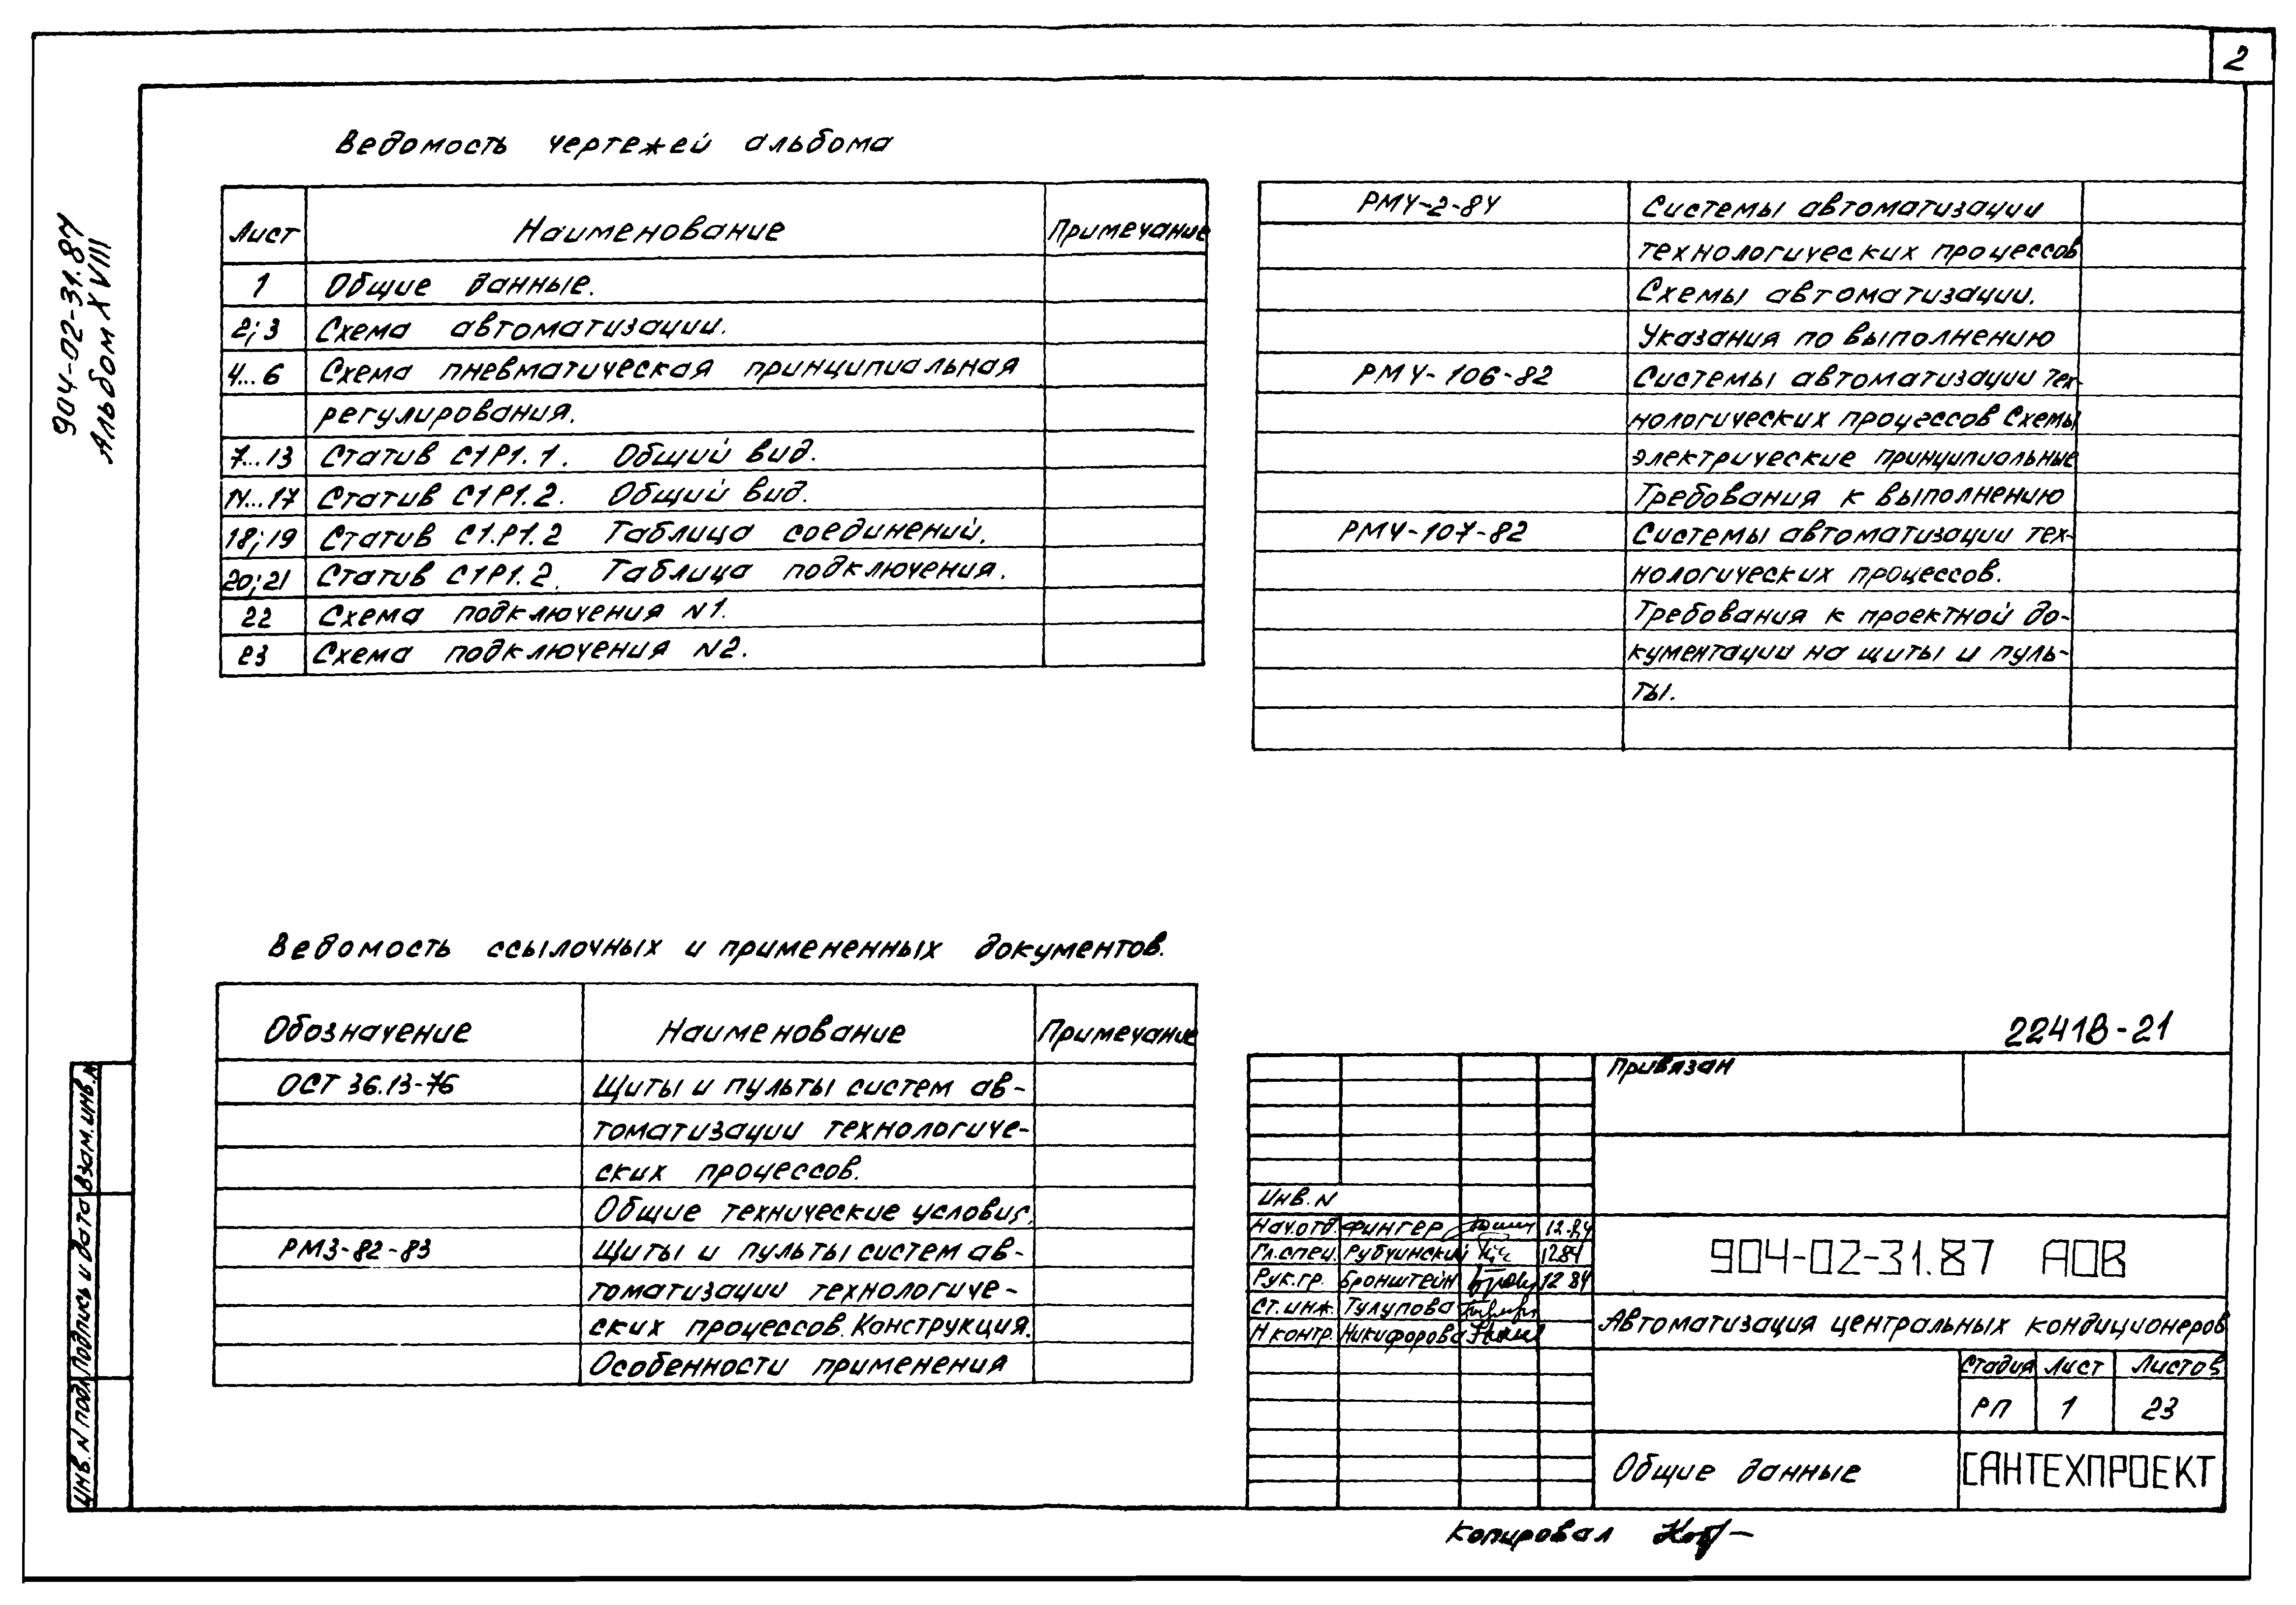 2
904-02-31.87
Альбом XVIII
Ведомость чертежей альбома
Лист Наименование Примечание
1 Общие данные.
2;3 Схема автоматизации.
4...6 Схема пневматическая принципиальная
регулирования.
7...13 Статив С1Р1.1. Общий вид.
14...17 Статив С1Р1.2. Общий вид.
18;19 Статив С1.Р1.2 Таблица соединений.
20;21 Статив С1Р1.2. Таблица подключения.
22 Схема подключения N1.
23 Схема подключения N2.
РМ4-2-84 Системы автоматизации
технологических процессов
Схемы автоматизации.
Указания по выполнению
РМ4-106-82 Системы автоматизации тех-
нологических процессов Схемы
электрические принципиальные
Требования к выполнению
РМ4-107-82 Системы автоматизации тех-
нологических процессов.
Требования к проектной до-
кументации на щиты и пуль-
ты.
Ведомость ссылочных и примененных документов.
Обозначение Наименование Примечание
ОСТ 36.13-76 Щиты и пульты систем ав-
томатизации технологиче-
ских процессов.
Общие технические условия.
РМ3-82-83 Щиты и пульты систем ав-
томатизации технологиче-
ских процессов. Конструкция.
Особенности применения
22418-21
Привязан
Инв. N
Нач.отд. Фингер 12.84
Гл.спец. Рубчинский 12.84
Рук.гр. Бронштейн 12.84
Ст.инж. Тулупова
Н контр. Никифорова
904-02-31.87 АОВ
Автоматизация центральных кондиционеров
Стадия Лист Листов
РП 1 23
Общие данные
САНТЕХПРОЕКТ
Копировал
Инв. N подл. Подпись и дата Взам. инв. N